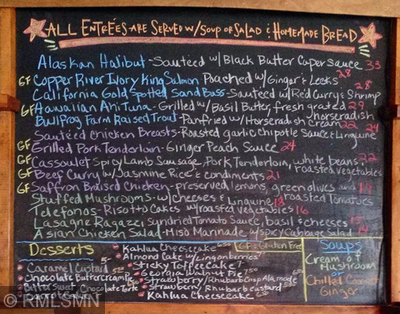 ALL ENTRÉES ARE SERVED W/ SOUP OR SALAD & HOMEMADE BREAD
Alaskan Halibut - Sauteed w/ Black Butter Caper sauce 33
GF Copper River Ivory King Salmon Poached w/ Ginger & Leeks 28
California Gold Spotted Sand Bass - Sauteed w/ Red Curry & Shrimp 28
GF Hawaiian Ahi Tuna - Grilled w/ Basil Butter, fresh grated horseradish 29
Bullfrog Farm Raised Trout - Panfried w/ Horseradish cream 22
Sautéed Chicken Breasts - Roasted garlic Chipotle Sauce & Linguine 24
GF Grilled Pork Tenderloin - Ginger Peach Sauce 24
GF Cassoulet Spicy Lamb Sausage, Pork Tenderloin, white beans 22
GF Beef Curry w/ Jasmine Rice & condiments 21 roasted vegetables
GF Saffron Braised Chicken - preserved lemons, green olives and
Stuffed Mushrooms - w/ Cheeses & Linguine 13 roasted Tomatoes
Telefonos - Risotto Cakes w/ Roasted vegetables 16
Lasagne Ragazzi - Sundried Tomato Sauce, basil & cheeses 15
Asian Chicken Salad - Miso Marinade w/ Spicy Cabbage Salad 14
Desserts
Caramel Custard
Chocolate Buttercreme Pie
Bitter Sweet Chocolate Torte
Kahlua Cheesecake
Almond Cake w/ Lingonberries
Sticky Toffee Cake
Georgia Walnut Pie
Strawberry/Rhubarb Crisp Ala mode
Strawberry Rhubarb Custard
Kahlua Cheesecake
GF = Gluten Free
Soups
Cream of Mushroom
Chilled Carrot Ginger
© RMLSMN